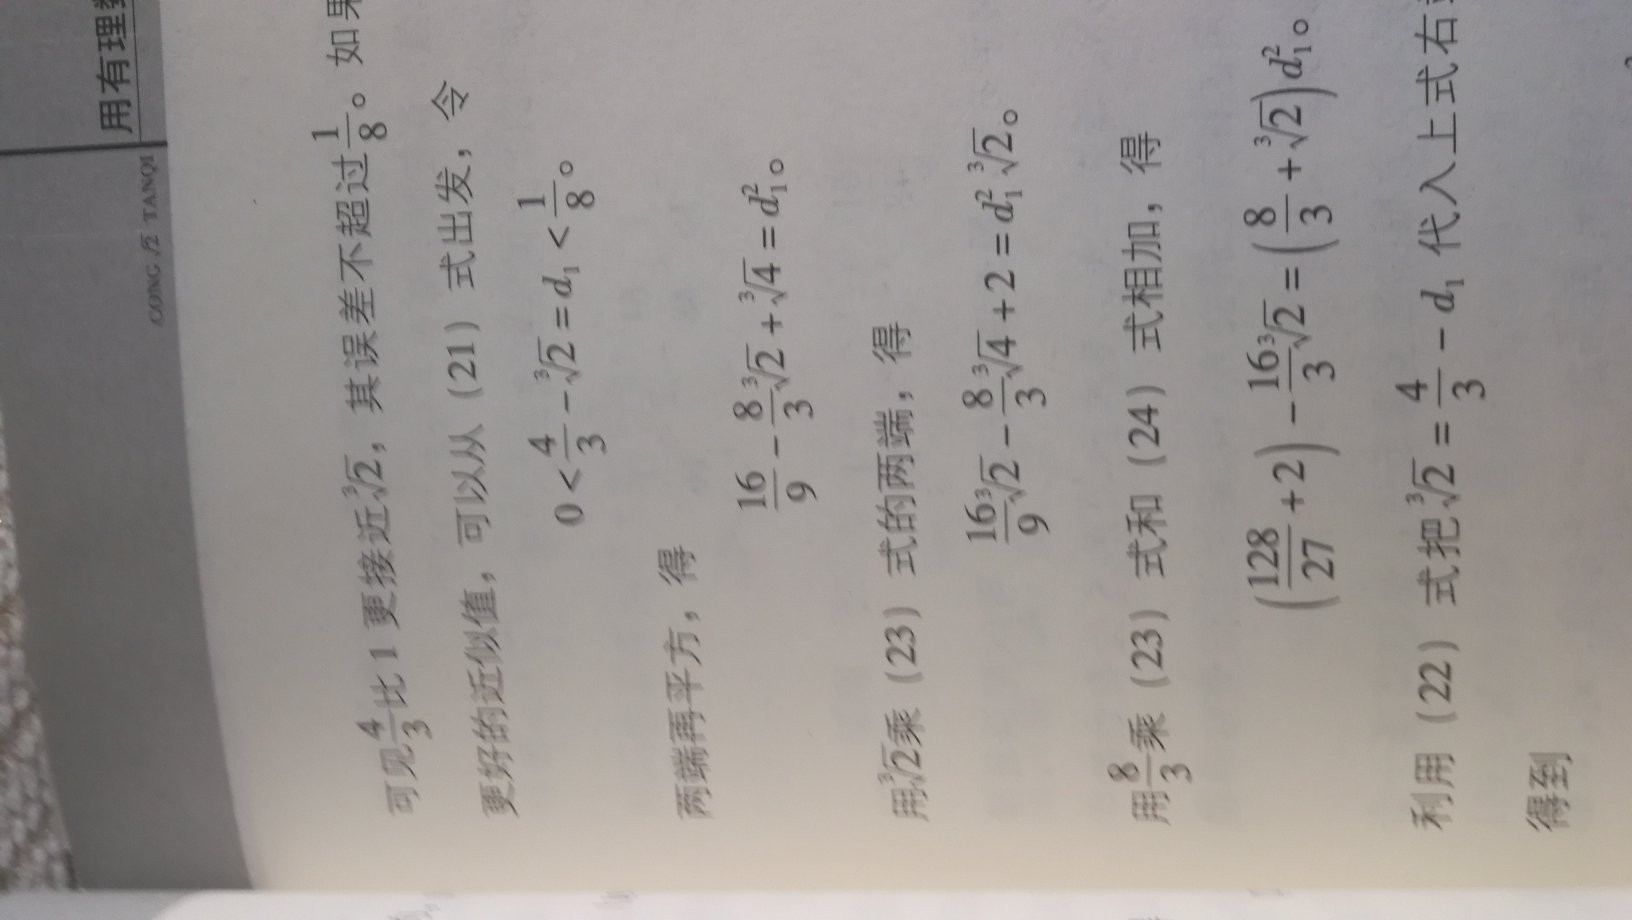 用有理
CONG √2 TANQI
可见4/3比1更接近∛2，其误差不超过1/8。如果
更好的近似值，可以从（21）式出发，令
0 < 4/3 - ∛2 = d₁ < 1/8。
两端再平方，得
16/9 - 8/3 ∛2 + ∛4 = d₁²。
用∛2乘（23）式的两端，得
16/9 ∛2 - 8/3 ∛4 + 2 = d₁² ∛2。
用8/3乘（23）式和（24）式相加，得
(128/27 + 2) - 16/3 ∛2 = (8/3 + ∛2) d₁²。
利用（22）式把∛2 = 4/3 - d₁ 代入上式右
得到